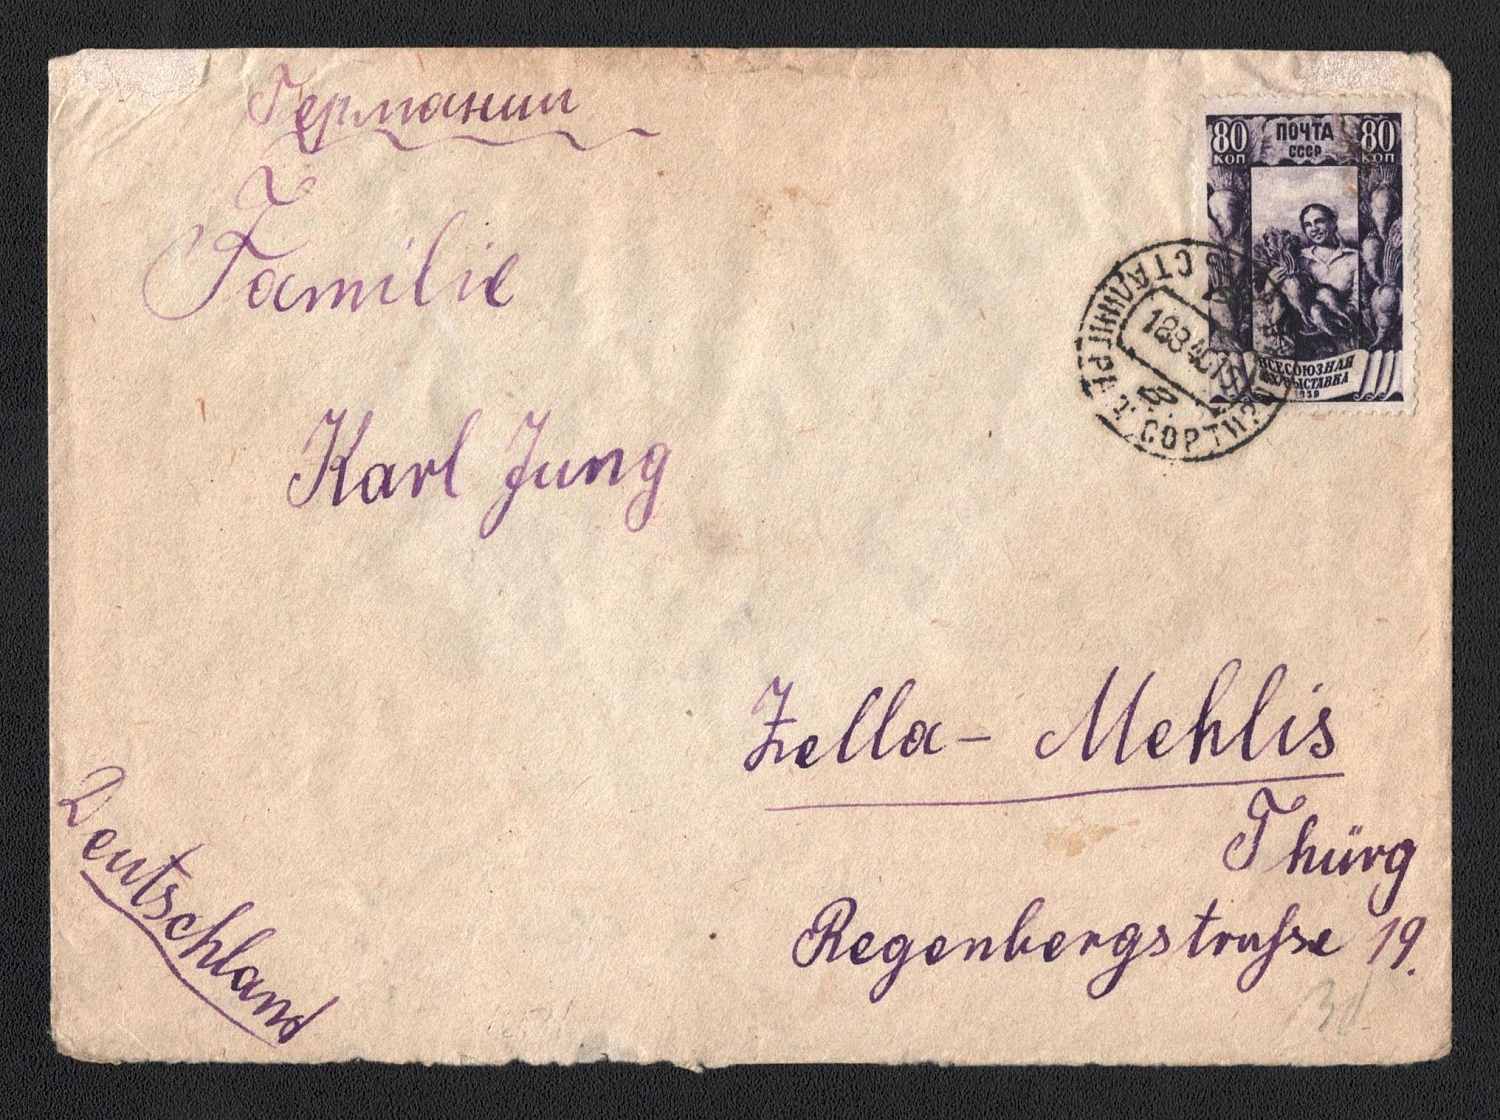 Германии
Familie
Karl Jung
Zella - Mehlis
Thürg
Regenbergstraße 19.
Deutschland
80 ПОЧТА 80
КОП СССР КОП
ВСЕСОЮЗНАЯ
ВЫСТАВКА
1939
СТАЛИНГРАД
18 3 40 19